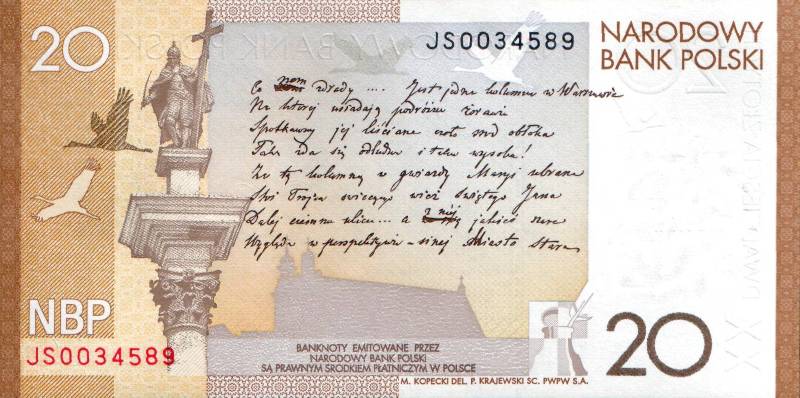 20
JS0034589
NARODOWY
BANK POLSKI
Co nam zdrady .... Jest jedna kolumna w Warszawie
Na ktorej usiadają podróżne żorawie
Spotkawszy jej liściane czoło śród obłoka
Taka zda się odludna i taka wysoka!
Za tą kolumną w gwiazdy Maryi ubrana
Stoi Trojca swiecących wież świętego Jana
Dalej ciemna ulica... a z niej jakieś szare
Wygląda w perspektywie - sinej Miasto Stare
NBP
JS0034589
BANKNOTY EMITOWANE PRZEZ
NARODOWY BANK POLSKI
SĄ PRAWNYM ŚRODKIEM PŁATNICZYM W POLSCE
20
M. KOPECKI DEL. P. KRAJEWSKI SC. PWPW S.A.